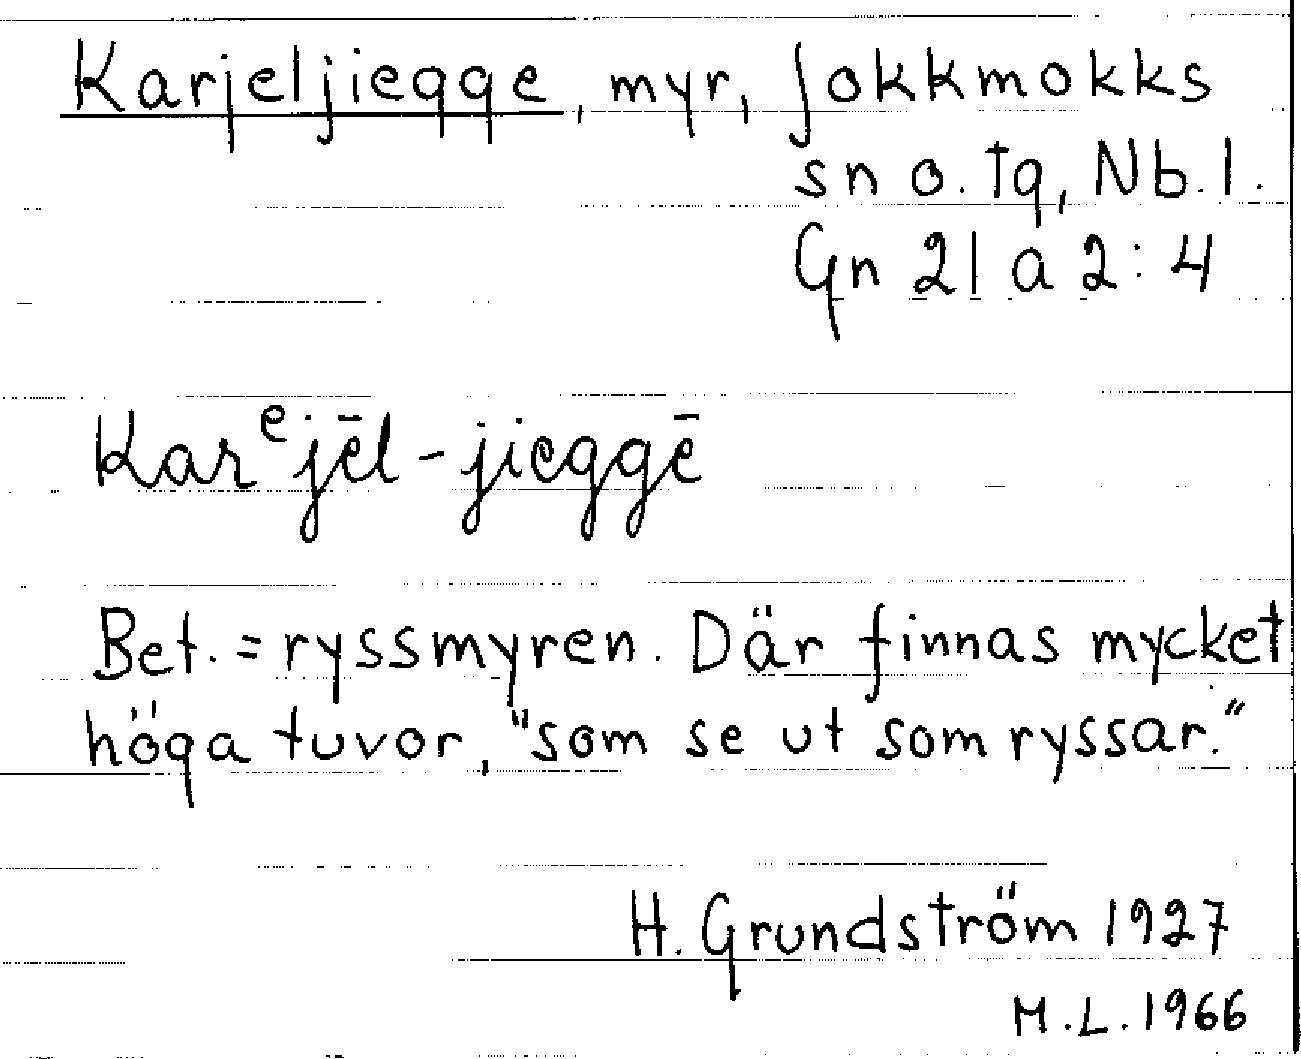 Karjeljiegge, myr, Jokkmokks
sn o. tg, Nb. l.
Gn 21 a 2:4
Karᵉjēl-jieggē
Bet. = ryssmyren. Där finnas mycket
höga tuvor, "som se ut som ryssar."
H. Grundström 1927
M.L. 1966